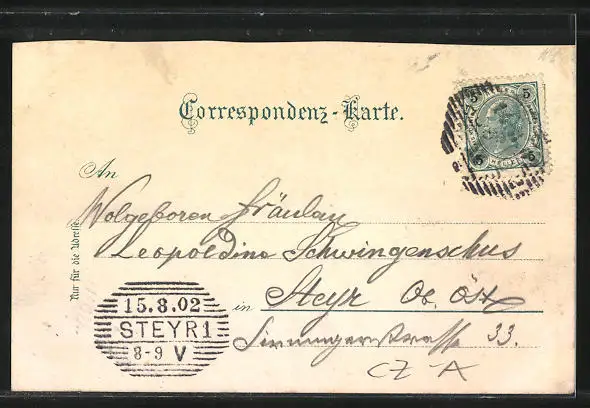 Correspondenz-Karte.
5 5
5 5
An
Wolgeboren Fräulau
Leopoldine Schwingenschus
in Steyr Ob. Öst
Sirningerstrasse 33.
Nur für die Adresse
15.8.02
STEYR 1
8-9 V
CZ A